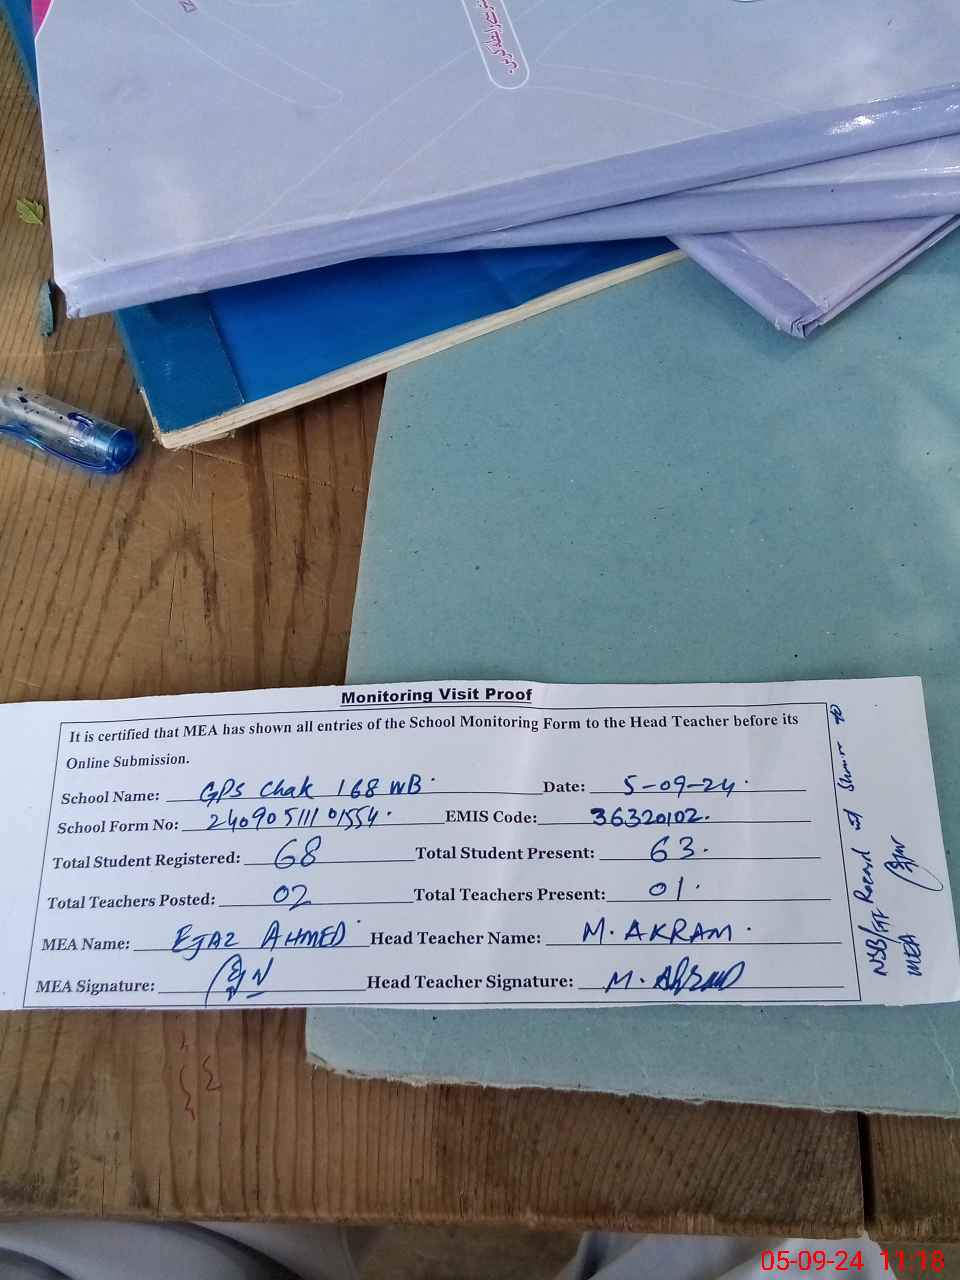 Monitoring Visit Proof
It is certified that MEA has shown all entries of the School Monitoring Form to the Head Teacher before its
Online Submission.
School Name: GPS Chak 168 WB Date: 5-09-24
School Form No: 24090511101554 EMIS Code: 36320102
Total Student Registered: 68 Total Student Present: 63
Total Teachers Posted: 02 Total Teachers Present: 01
MEA Name: EJAZ AHMED Head Teacher Name: M. AKRAM
MEA Signature: Head Teacher Signature: M. Akram
NSB/FTF Record not Shown to
MEA
05-09-24 11:18